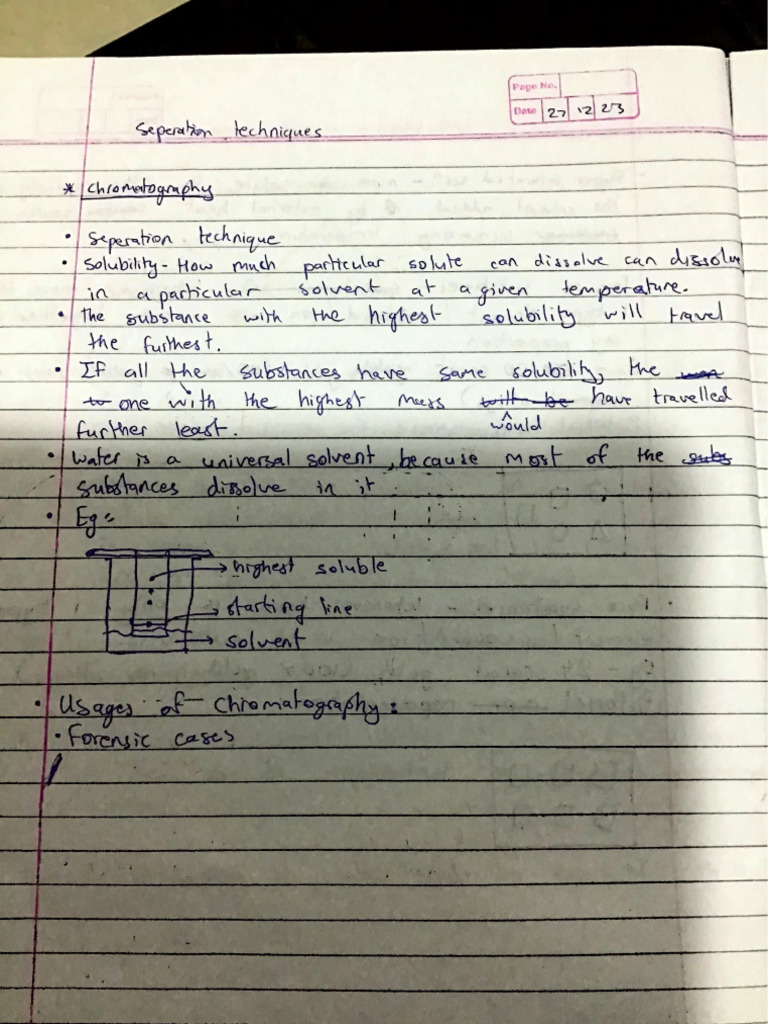 Page No.
Date 27 12 23
Seperation techniques
* Chromatography
• Seperation technique
• Solubility - How much particular solute can dissolve can dissolve
in a particular solvent at a given temperature.
• The substance with the highest solubility will travel
the furthest.
• If all the substances have same solubility, the
to one with the highest mass will be would have travelled
further least.
• Water is a universal solvent, because most of the subs
substances dissolve in it
• Eg:-
→ highest soluble
→ starting line
→ solvent
• Usages of Chromatography:
• Forensic cases